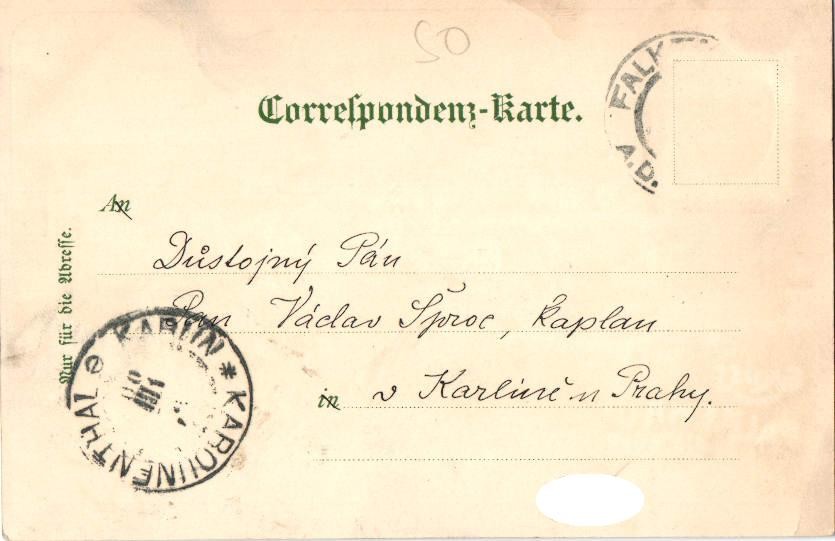 50
Correspondenz-Karte.
FALK
A.D.
An
Důstojný Pán
Pan Václav Šproc, kaplan
in v Karlíně u Prahy.
Nur für die Adresse.
KARLIN * KAROLINENTHAL